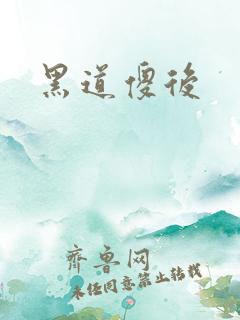 黑道傻後
齊魯网
未经同意禁止转载